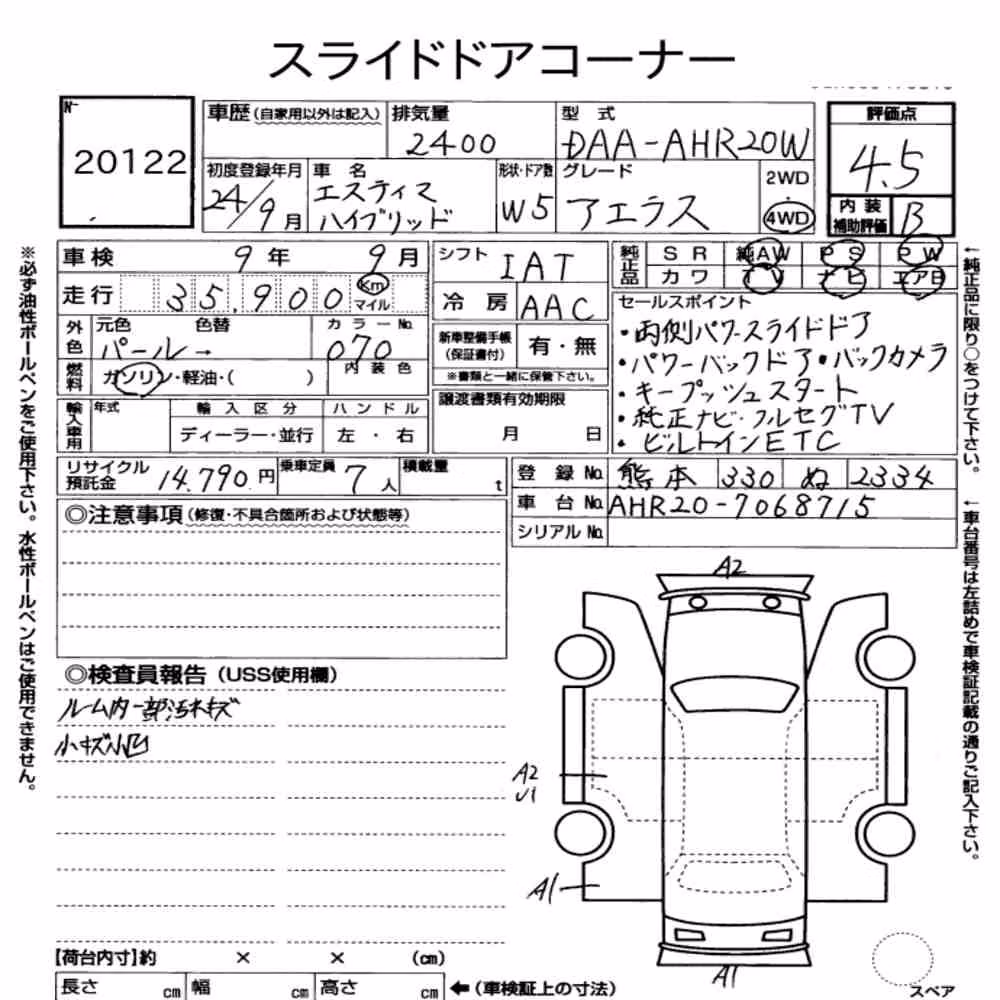 スライドドアコーナー
N-
20122
車歴(自家用以外は記入)
排気量
2400
型式
DAA-AHR20W
評価点
4.5
初度登録年月
24/9月
車名
エスティマ
ハイブリッド
形状・ドア数
W5
グレード
アエラス
2WD
4WD
内装
補助評価
B
車検 9年 9月
走行 35,900 Km マイル
シフト IAT
冷房 AAC
純正品
SR 純AW PS PW
カワ TV ナビ エアB
外色
元色 色替
パール→
カラーNo.
070
燃料
ガソリン・軽油・( )
内装色
新車整備手帳
(保証書付)
有・無
※書類と一緒に保管下さい。
セールスポイント
・両側パワースライドドア
・パワーバックドア・バックカメラ
・キープッシュスタート
・純正ナビ・フルセグTV
・ビルトインETC
輸入車用
年式
輸入区分
ハンドル
ディーラー・並行
左・右
譲渡書類有効期限
月 日
リサイクル
預託金
14,790円
乗車定員
7人
積載量
t
登録No. 熊本 330 ぬ 2334
車台No. AHR20-7068715
シリアルNo.
◎注意事項(修復・不具合箇所および状態等)
◎検査員報告(USS使用欄)
ルーム内一部汚れキズ
小キズ小凹
A2
A2
U1
A1
A1
スペア
【荷台内寸】約 × × (cm)
長さ cm 幅 cm 高さ cm
←(車検証上の寸法)
※必ず油性ボールペンをご使用下さい。水性ボールペンはご使用できません。
←純正品に限り○をつけて下さい。
←車台番号は左詰めで車検証記載の通りご記入下さい。